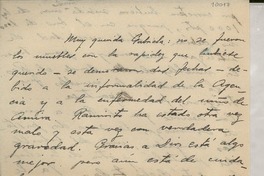 Muy querida Gabriela: no se fueron
los muebles con la rapidez que hubiese
querido – se demoraron dos fechas – de-
bido a la informalidad de la Agen-
cia y a la enfermedad del niño de
Ramirito ha estado otra vez
malo y esta vez con verdadera
gravedad. Gracias a Dios está algo
mejor pero aun está de cuida-